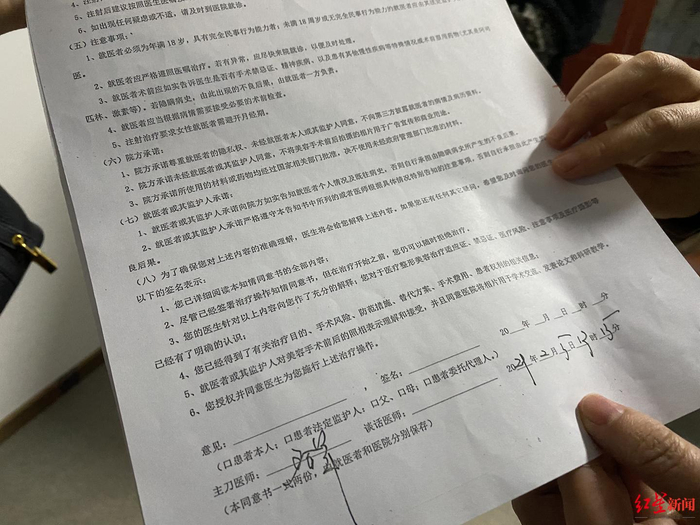 4、注射
5、注射后建议按照医生医嘱
6、如出现任何疑虑或不适，请及时到医院就诊。
(五) 注意事项：
1、就医者必须为年满18岁，具有完全民事行为能力者；未满18周岁或无完全民事行为能力的就医者应由其法定
医。
2、就医者应严格遵照医嘱治疗。若有异常，应尽快来院就诊，以便及时处理。
3、就医者术前应如实告诉医生是否有手术禁忌证、精神疾病，以及患有其他慢性疾病等特殊情况或术前服用药物(尤其是阿司
匹林、激素等)。若隐瞒病史，由此出现的不良后果，由就医者一方负责。
4、就医者应当根据病情需要接受必要的术前检查。
5、注射治疗要求女性就医者需避开月经期。
(六) 院方承诺：
1、院方承诺尊重就医者的隐私权、未经就医者本人或其监护人同意，不向第三方披露就医者的病情及病历资料。
2、院方承诺未经就医者或其监护人同意，不将美容手术前后拍摄的相片用于广告宣传和商业用途。
3、院方承诺所使用的材料或药物均经过国家相关部门批准，决不使用未经政府管理部门批准的材料。
(七) 就医者或其监护人承诺：
1、就医者或其监护人承诺向院方如实告知就医者个人情况及既往病史，否则自行承担由隐瞒病史所产生的不良后果。
2、就医者或其监护人承诺严格遵守本告知书中所列的或者医师根据具体情况特别告知的注意事项，否则自行承担由此产生
良后果。
(八) 为了确保您对上述内容的准确理解，医生将会给您解释上述内容。如果您还有任何其它疑问，
以下的签名表示：
1、您已详细阅读本知情同意书的全部内容；
2、尽管已经签署治疗操作知情同意书，但在治疗开始之前，您仍可以随时拒绝治疗。
3、您的医生针对以上内容向您作了充分的解释；您对于医疗整形美容治疗适应证、禁忌证、医疗风险、注意事项及医疗措施等
已经有了明确的认识；
4、您已经得到了有关治疗目的、手术风险、防范措施、替代方案、手术费用、患者权利的相关信息；
5、就医者或其监护人对美容手术前后的照相表示理解和接受，并且同意医院将相片用于学术交流、发表论文和科研教学。
6、您授权并同意医生为您施行上述治疗操作。
意见：，签名： 20 年 月 日 时 分
(口患者本人；口患者法定监护人；口父、口母；口患者委托代理人。)
主刀医师： 谈话医师： 2021年2月5日13时15分
(本同意书一式两份，由就医者和医院分别保存)
红星新闻